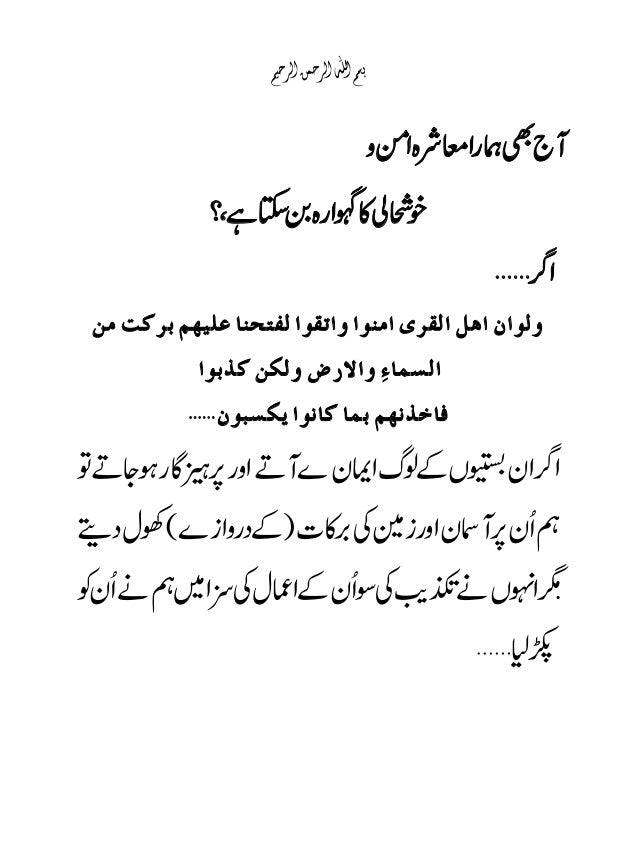 بسم اللہ الرحمن الرحیم
آج بھی ہمارا معاشرہ امن و
خوشحالی کا گہوارہ بن سکتا ہے،؟
اگر......
ولوان اهل القرى امنوا واتقوا لفتحنا عليهم بركت من
السماءِ والارض ولكن كذبوا
فاخذنهم بما كانوا يكسبون......
اگر ان بستیوں کے لوگ ایمان ے آتے اور پرہیزگار ہوجاتے تو
ہم اُن پر آسمان اور زمین کی برکات (کے دروازے) کھول دیتے
مگر انہوں نے تکذیب کی سو اُن کے اعمال کی سزا میں ہم نے اُن کو
پکڑ لیا......